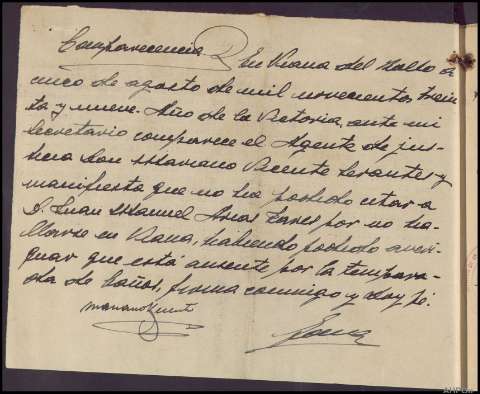 Comparecencia. En Viana del Bollo a
cinco de agosto de mil novecientos trein-
ta y nueve. Año de la Victoria, ante mi
Secretario comparece el Agente de jus-
ticia Don Mariano Vicente y
manifiesta que no ha podido citar a
D. Juan Manuel Arias por no ha-
llarse en Viana, habiendo podido averi-
guar que está ausente por la tempora-
da de baños, firma conmigo y doy fé.
Mariano Vicente